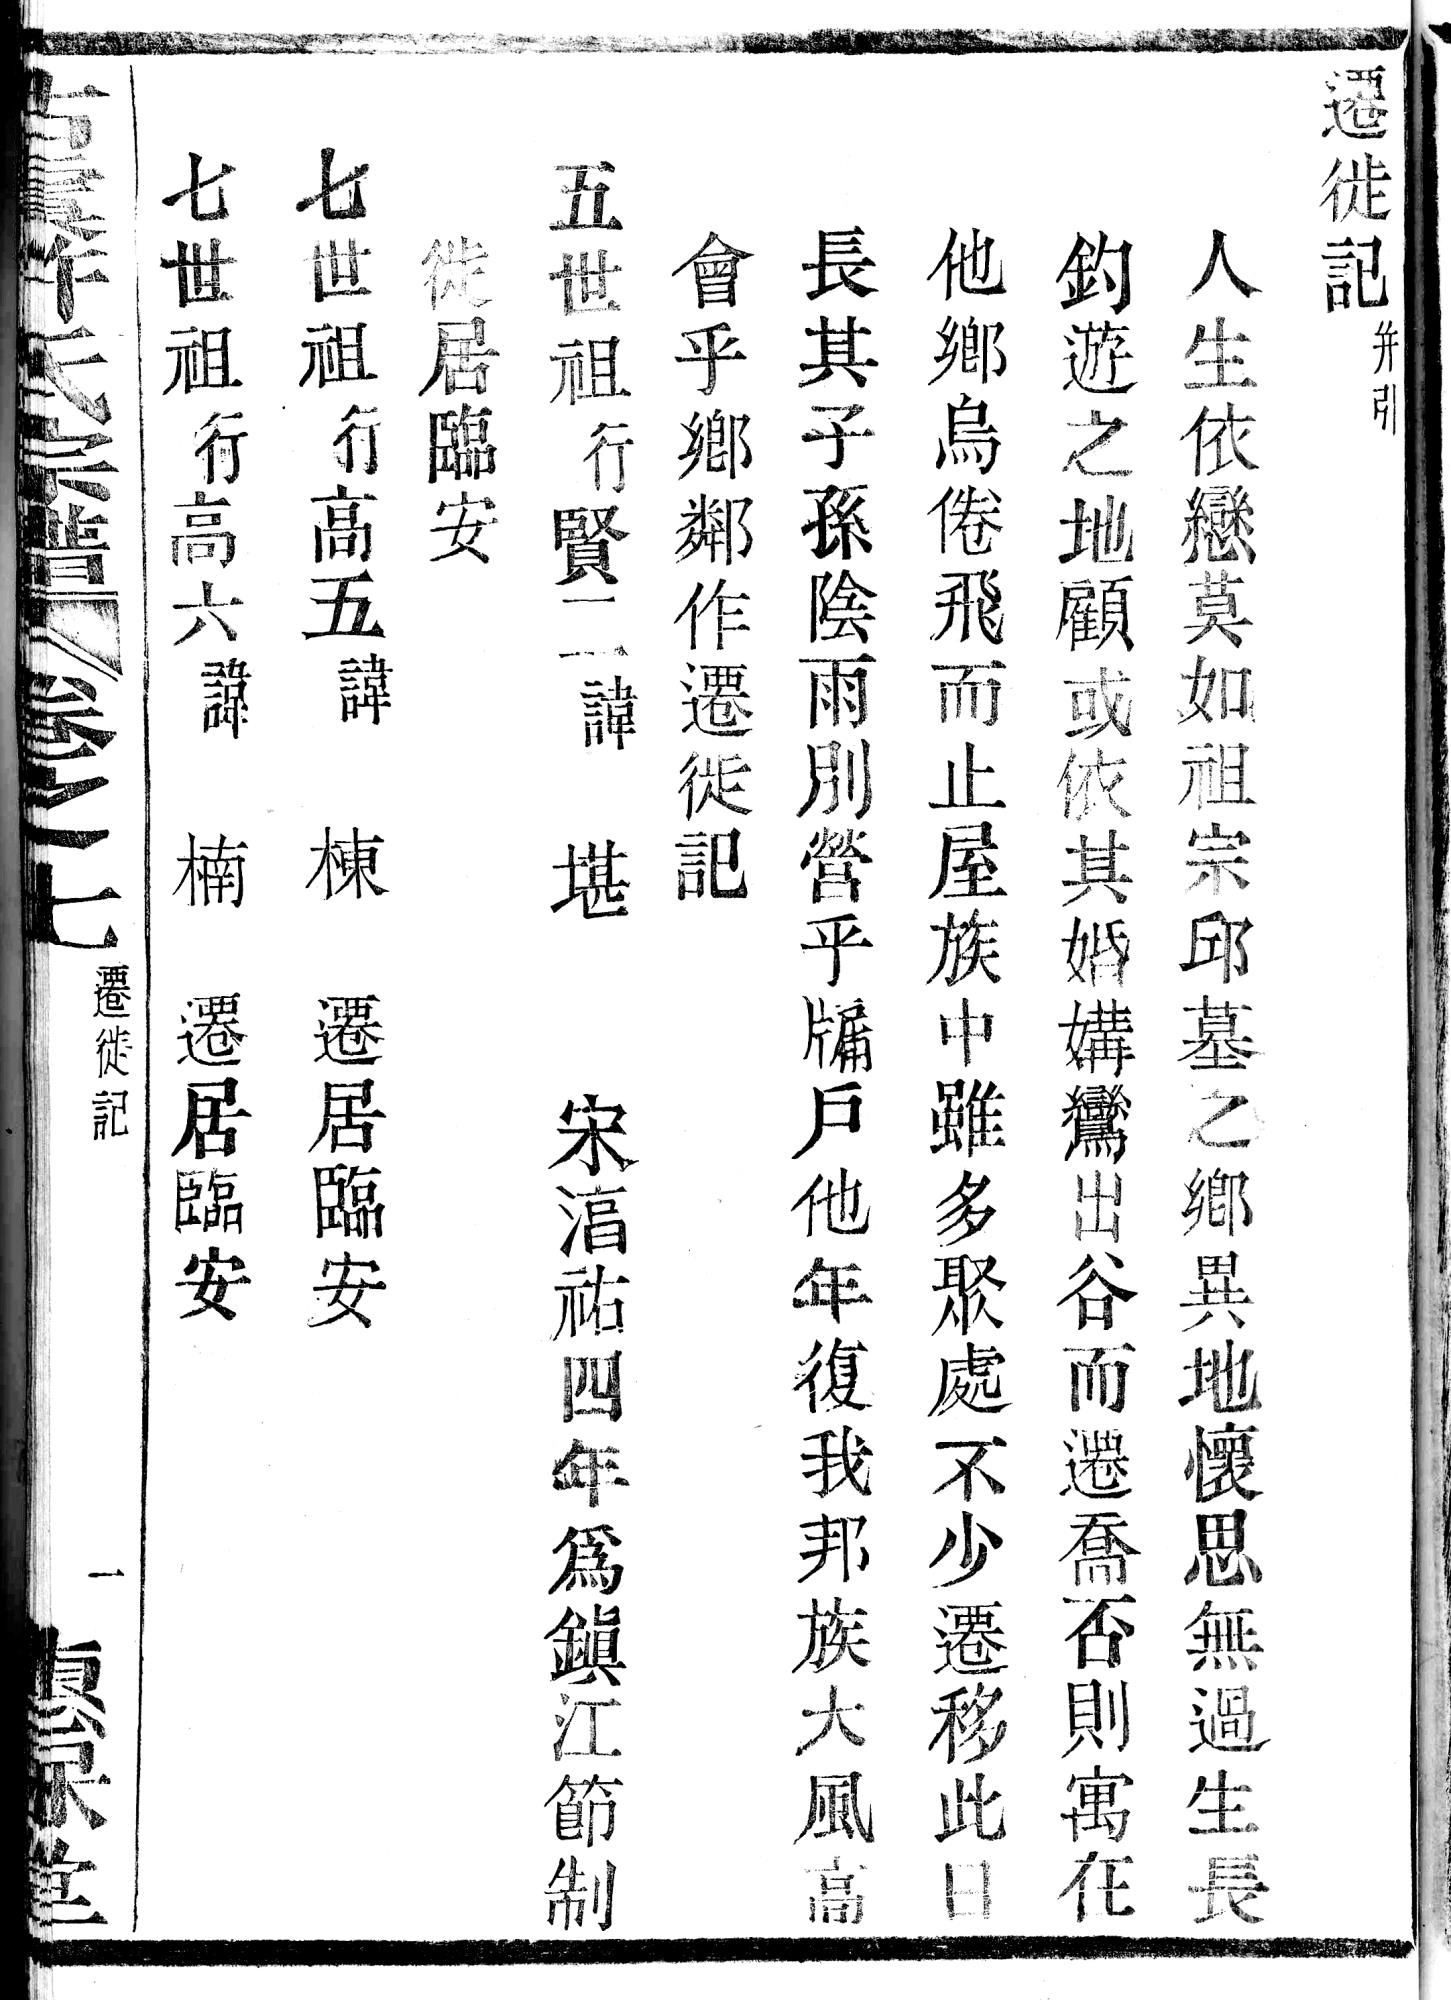 遷徙記 并引
人生依戀莫如祖宗邱墓之鄉異地懷思無過生長
釣遊之地顧或依其婚媾鶯出谷而遷喬否則寓在
他鄉烏倦飛而止屋族中雖多聚處不少遷移此日
長其子孫陰雨別營乎牖戶他年復我邦族大風高
會乎鄉鄰作遷徙記
五世祖行賢二諱 堪 宋湻祐四年爲鎭江節制
徙居臨安
七世祖行高五諱 棟 遷居臨安
七世祖行高六諱 楠 遷居臨安
氏宗譜 卷之七 遷徙記 一 堂